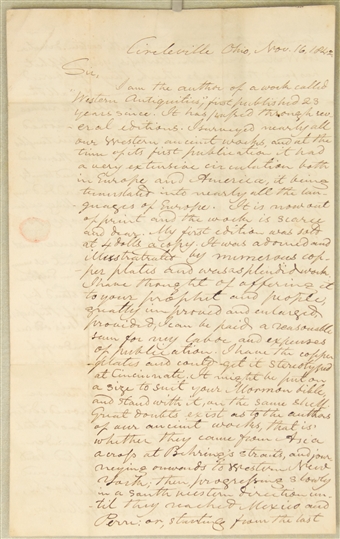 Circleville Ohio, Nov. 16, 1842
Sir,
I am the author of a work called
Western Antiquities, first published 23
years since. It has passed through sev-
eral editions. I surveyed nearly all
our Western ancient works, and at the
time of its first publication it had
a very extensive circulation both
in Europe and America, it being
translated into nearly all the lan-
guages of Europe. It is now out
of print and the work is scarce
and dear. My first edition was sold
at 4 dolls a copy. It was adorned and
illustrated by numerous cop-
per plates and was a splendid work
I have thought of offering it
to your prophet and people,
greatly improved and enlarged
provided, I can be paid, a reasonable
sum for my labor and expenses
of publication. I have the copper
plates and could get it stereotyped
at Cincinnati. It might be put on
a size to suit your Mormon bible,
and stand with it, on the same shelf.
Great doubts exist as to the authors
of our ancient works, that is
whether they came from Asia
across at Behring's straits, and jour
neying onwards to Western New
York; then progressing slowly
in a south western direction un-
til they reached Mexico and
Peru; or, starting from the last